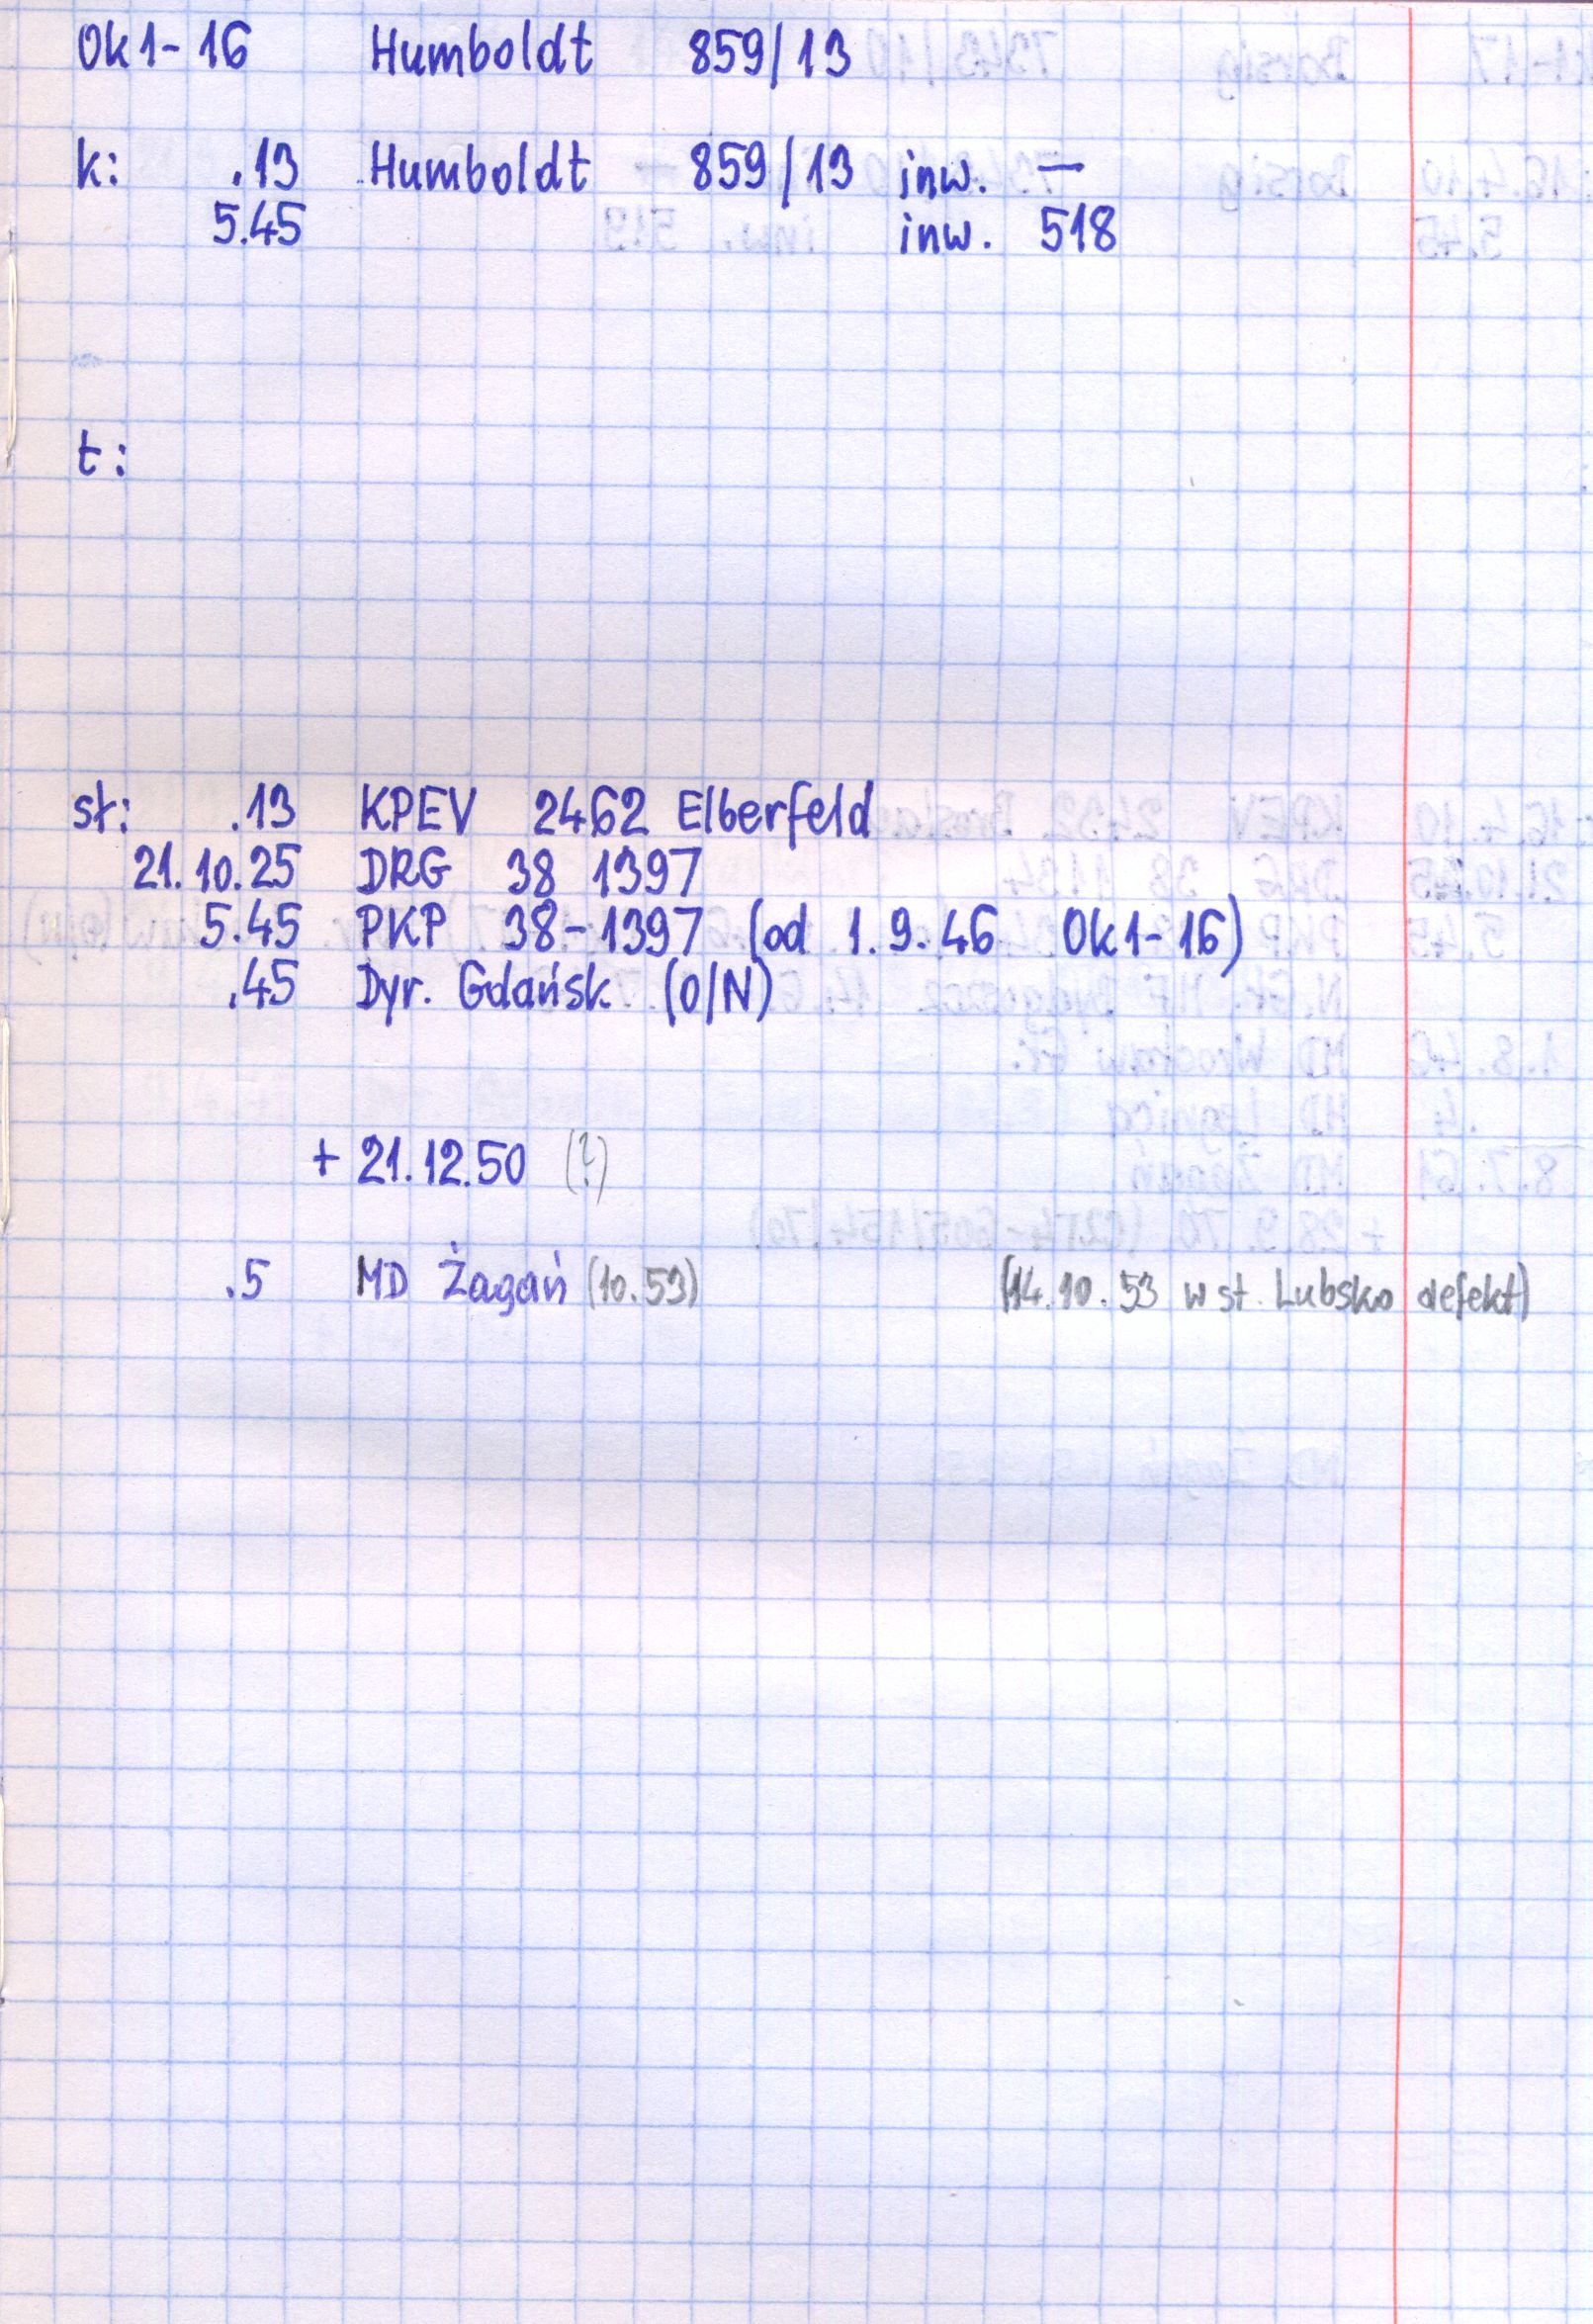 Ok1-16 Humboldt 859/13
k: .13 Humboldt 859/13 inw. —
5.45 inw. 518
t:
st: .13 KPEV 2462 Elberfeld
21.10.25 DRG 38 1397
5.45 PKP 38-1397 (od 1.9.46 Ok1-16)
.45 Dyr. Gdańsk (O/N)
+ 21.12.50 (?)
.5 MD Żagań (10.53) (14.10.53 w st. Lubsko defekt)